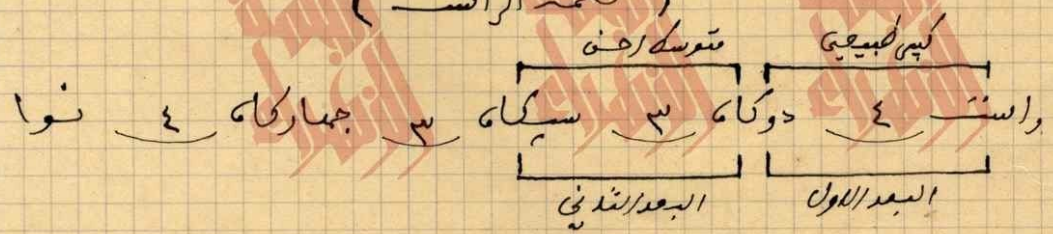 كبير طبيعي متوسط احسن
راست ٤ دوكاه ٣ سيكاه ٣ جهاركاه ٤ نوا
البعد الاول البعد الثاني